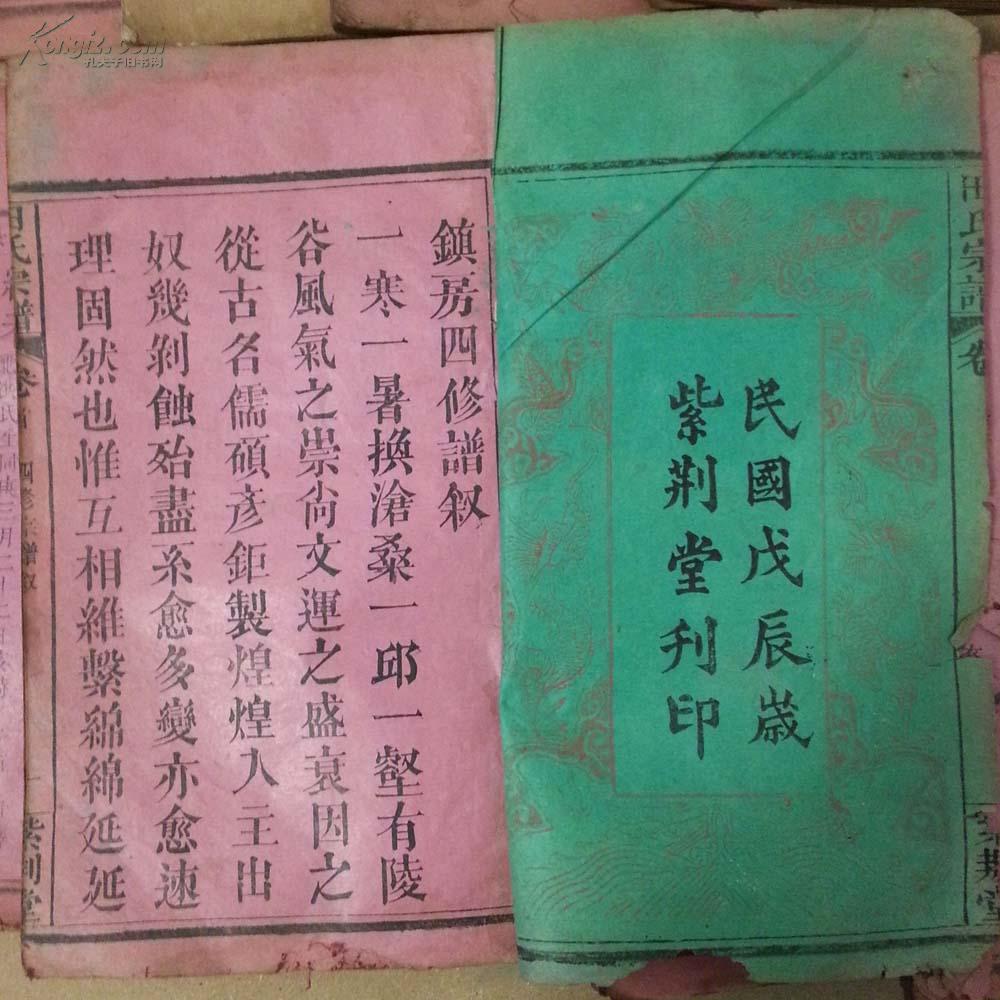 Kongfz.com
孔夫子旧书网
田氏宗譜
卷
紫荆堂
民國戊辰歲
紫荆堂刋印
鎮房四修譜叙
一寒一暑換滄桑一邱一壑有陵
谷風氣之崇尚文運之盛衰因之
從古名儒碩彦鉅製煌煌入主出
奴幾剝蝕殆盡系愈多變亦愈速
理固然也惟互相維繫綿綿延延
田氏宗譜
卷首
四修宗譜叙
一
紫荆堂